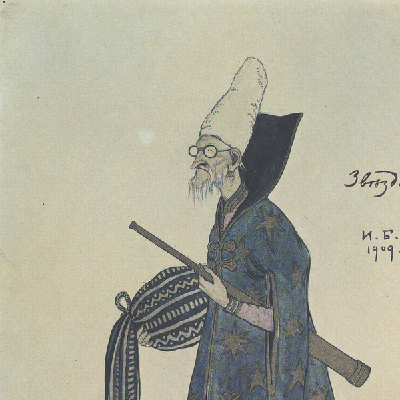 Звѣзд
И. Б.
1909.